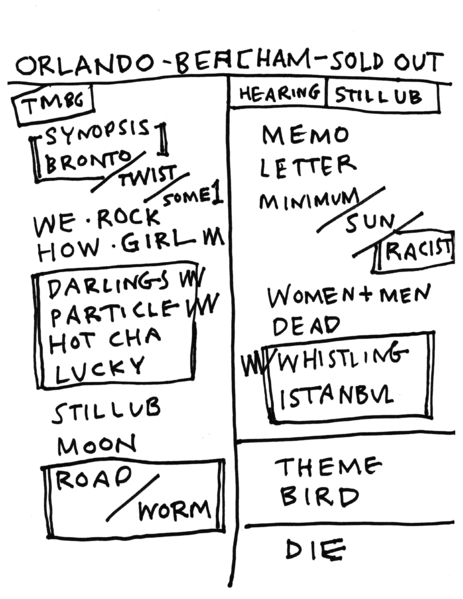 ORLANDO-BEACHAM-SOLD OUT
TMBG
SYNOPSIS
BRONTO
TWIST
SOME1
WE . ROCK
HOW . GIRL M
DARLINGS W
PARTICLE W
HOT CHA
LUCKY
STILLUB
MOON
ROAD
WORM
HEARING
STILLUB
MEMO
LETTER
MINIMUM
SUN
RACIST
WOMEN+MEN
DEAD
W WHISTLING
ISTANBUL
THEME
BIRD
DIE